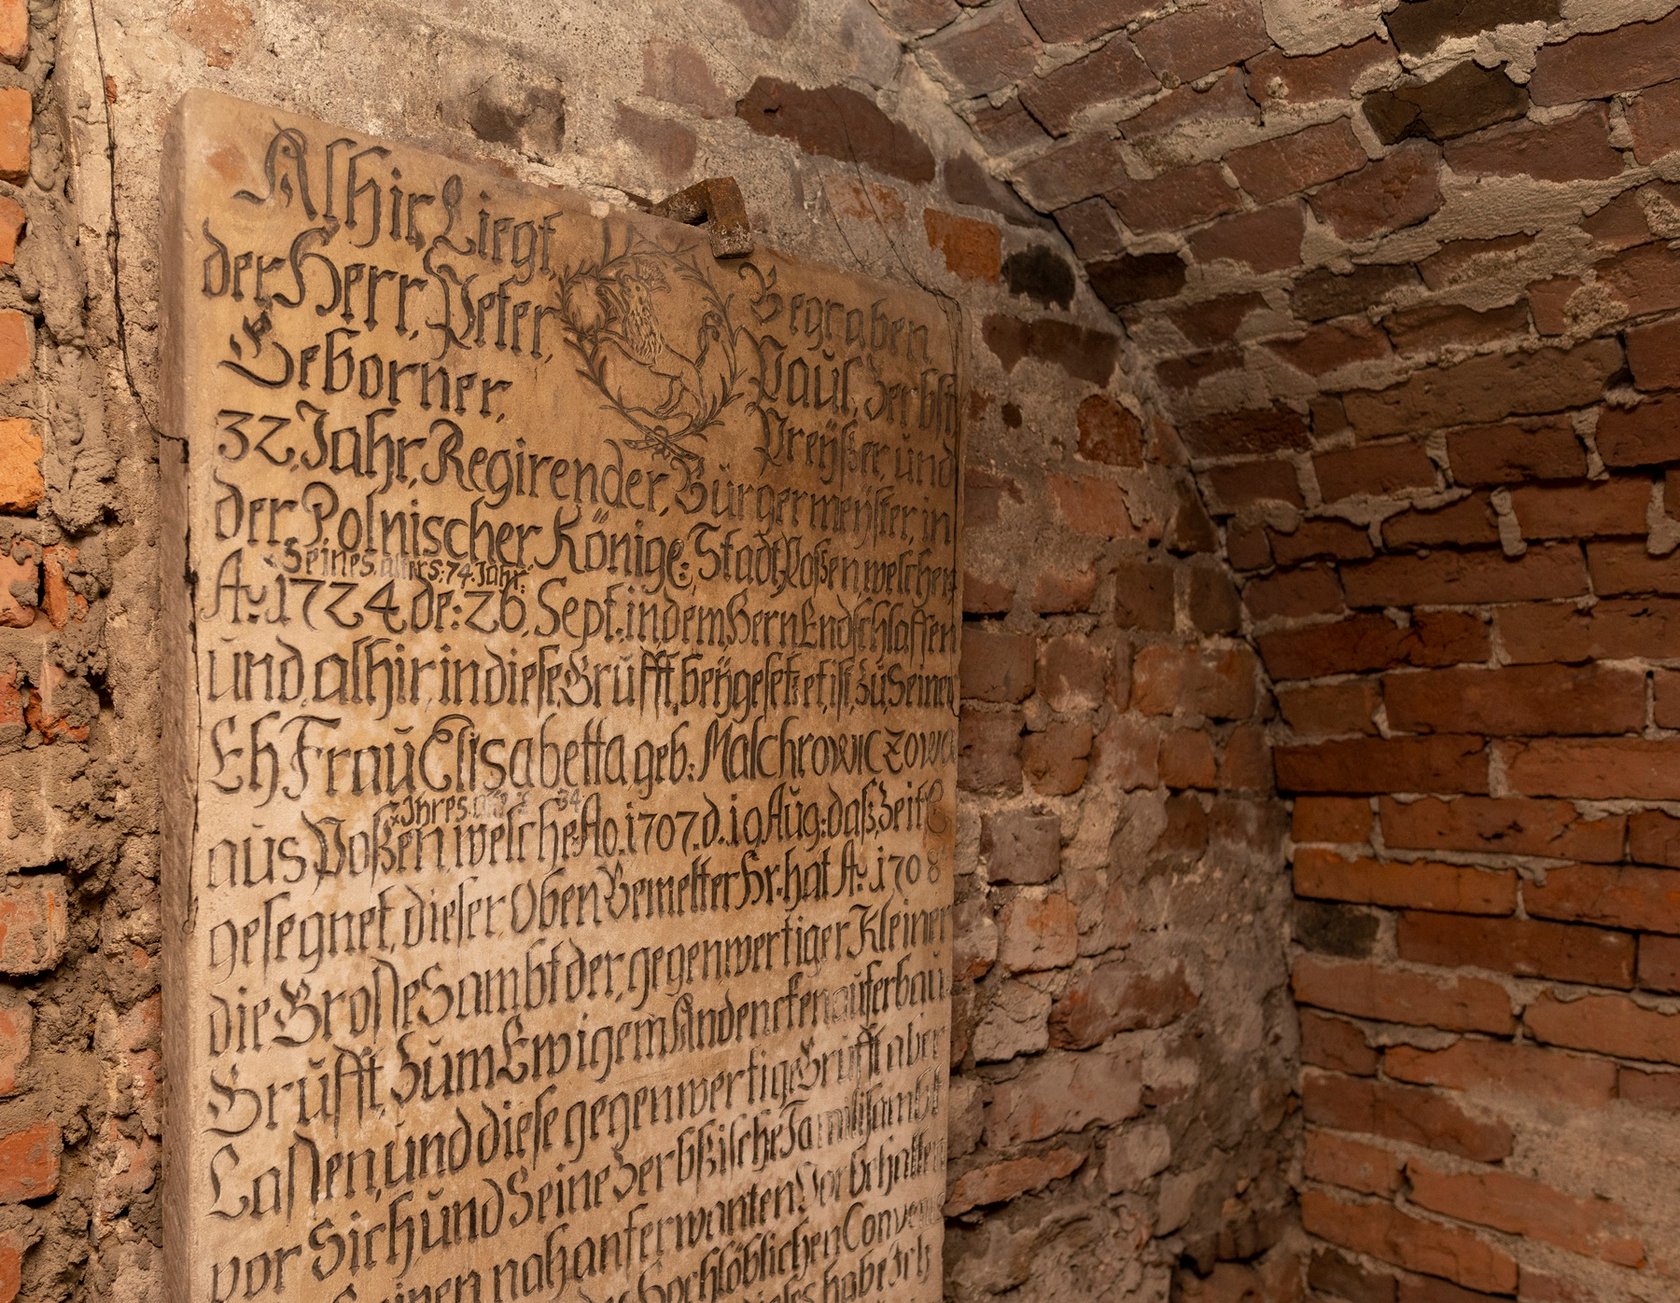 Alhir Liegt, Begraben
der Herr, Peter, Paul, Zerbst
Geborner, Preÿßer, und
32, Jahr, Regirender, Bürgermeÿster, in
der, Polnischer, Könige: Stadt, Poßen, welcher
Seines, alters: 74. Jahr.
Ao 1724, de: 26, Sept. in dem, Hern Endschlaffen
und, alhir, in diese, Grufft, beÿgesetzet, ist, zu, Seiner
Eh Frau Elisabetta geb: Malchrowiczowa
Ihres 34
aus Poßen, welche Ao. 1707. d. 19 Aug: daß, Zeitl
gesegnet, dieser Oben Bemelter Hr. hat Ao 1708
die Große Sambt der, gegenwertiger Kleiner
Grufft, Zum Ewigem Andencken auferbau
Laßen, und diese gegenwertige Grufft aber
vor Sich und Seine Zerbstische Famili sambt
Seinen nah anferwanten Vorbehalten
Hochlöblichen Conven
dieses habe Ich